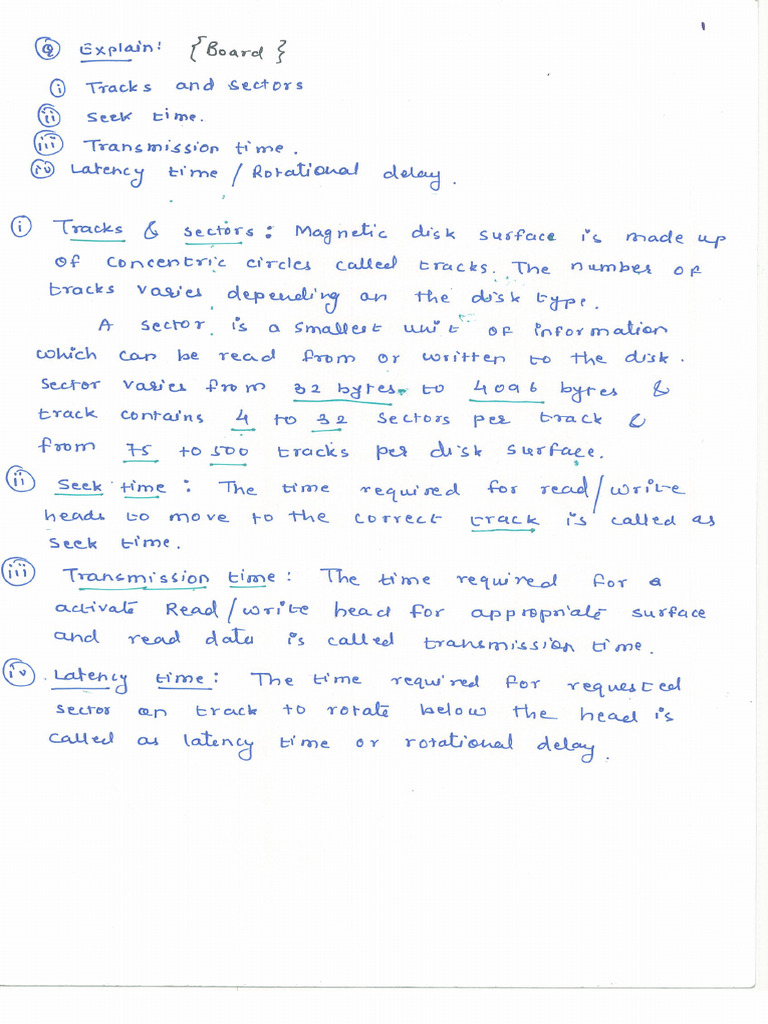 1
Q Explain: {Board}
i Tracks and sectors
ii Seek time.
iii Transmission time.
iv Latency time / Rotational delay.
i Tracks & sectors: Magnetic disk surface is made up
of concentric circles called tracks. The number of
tracks varies depending on the disk type.
A sector is a smallest unit of information
which can be read from or written to the disk.
Sector varies from 32 bytes to 4096 bytes &
track contains 4 to 32 sectors per track &
from 75 to 500 tracks per disk surface.
ii Seek time: The time required for read/write
heads to move to the correct track is called as
seek time.
iii Transmission time: The time required for a
activate Read/write head for appropriate surface
and read data is called transmission time.
iv Latency time: The time required for requested
sector on track to rotate below the head is
called as latency time or rotational delay.